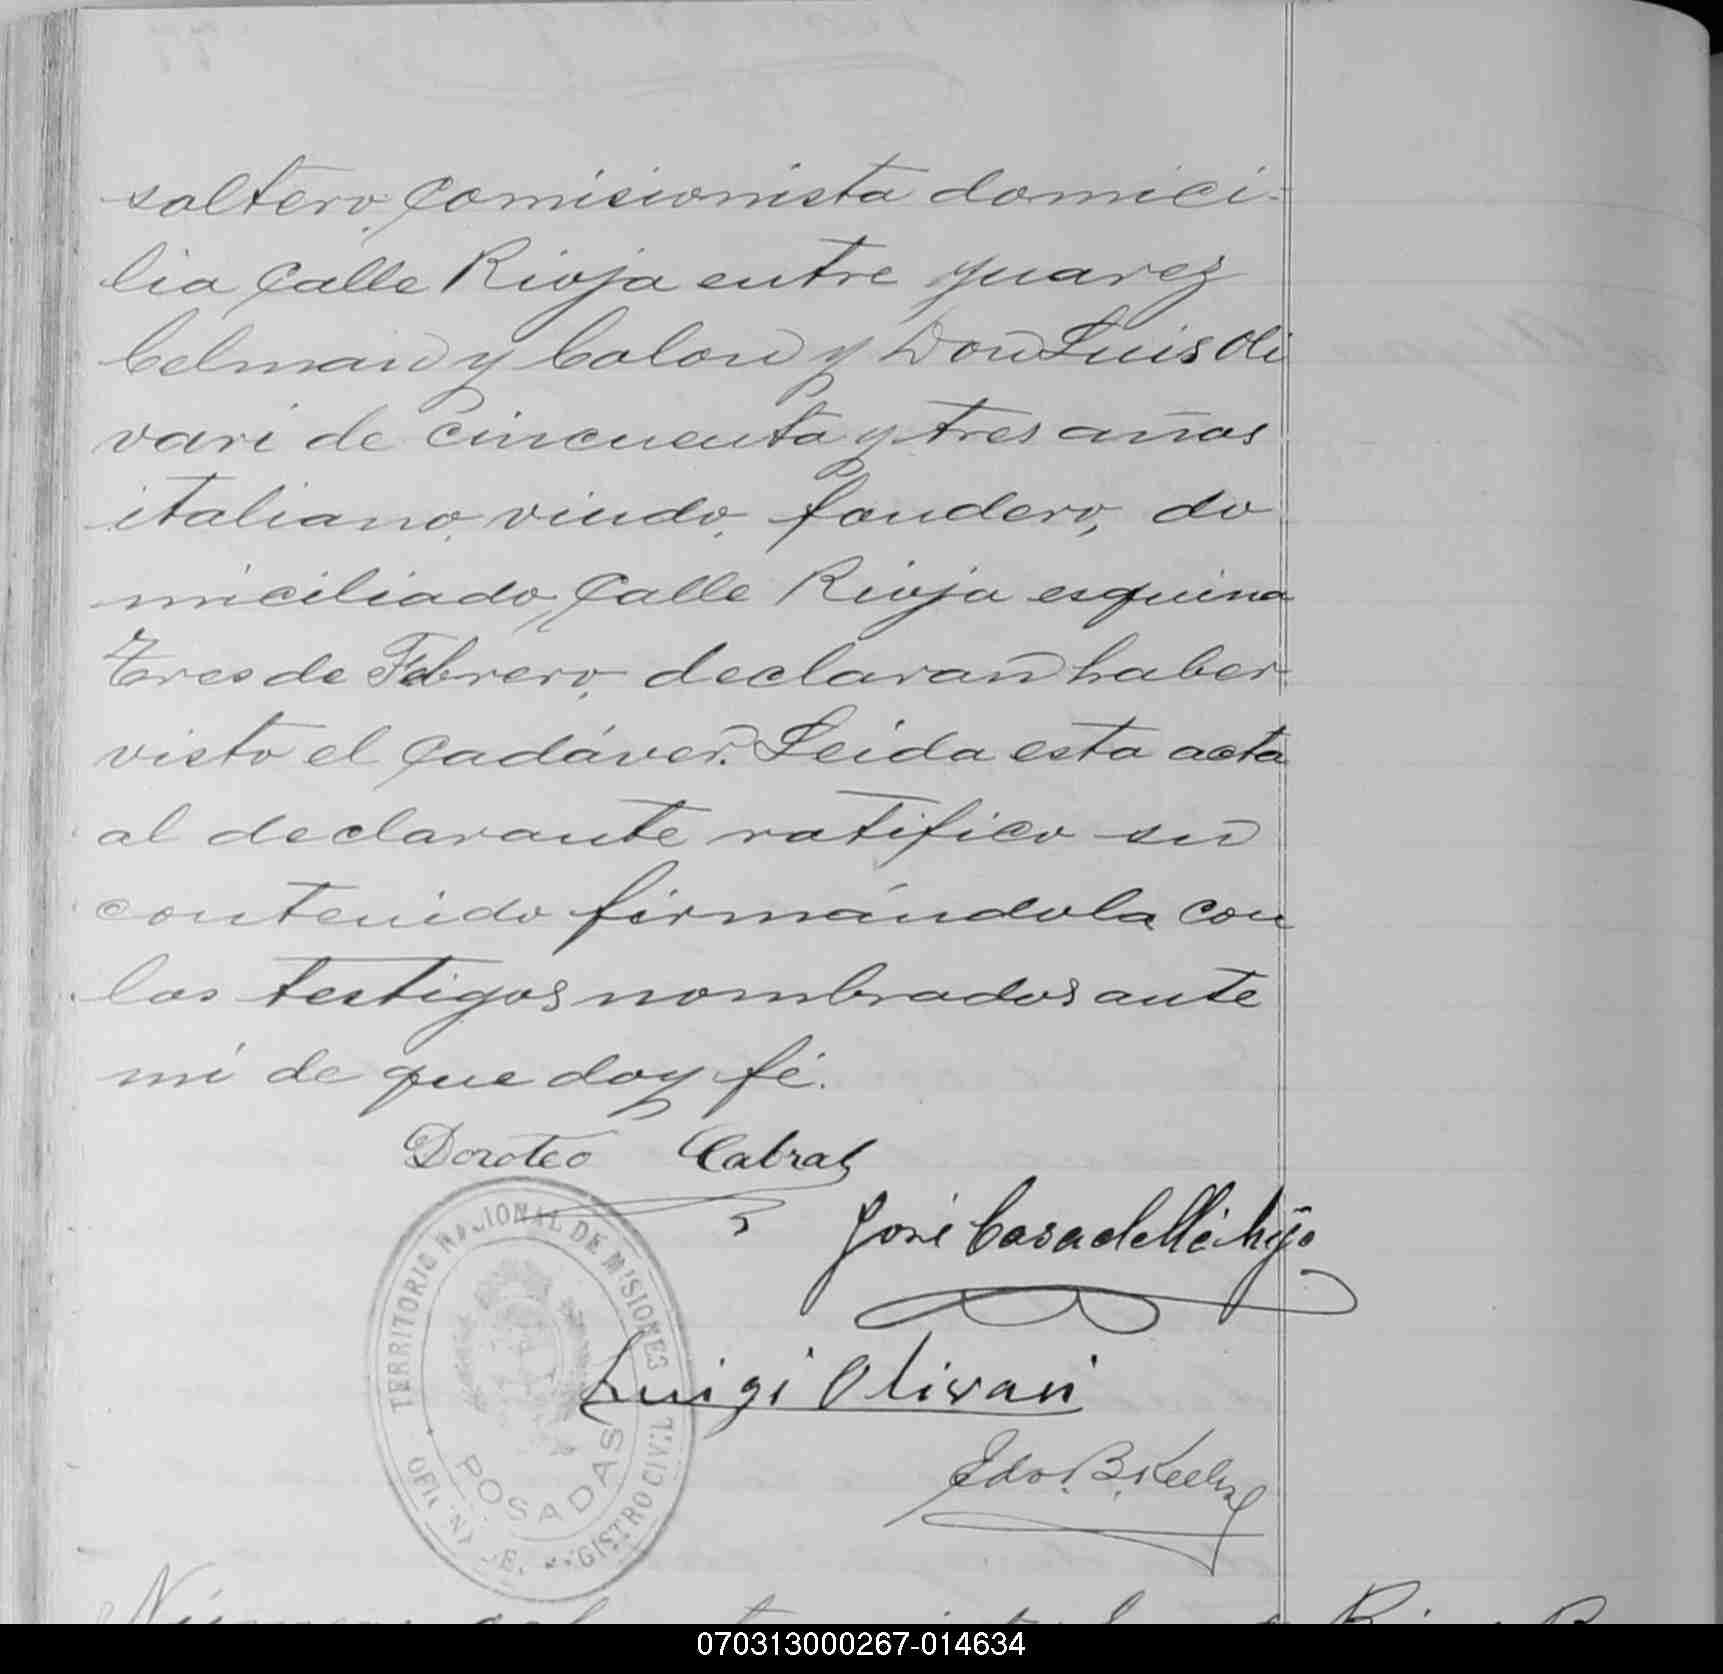 soltero, Comisionista domici-
lia Calle Rioja entre Juarez
Celman y Colon y Don Luis Oli
vari de cincuenta y tres años
italiano, viudo, fondero, do
miciliado Calle Rioja esquina
Tres de Febrero, declaran haber
visto el Cadáver. Leida esta acta
al declarante ratifico su
contenido firmándola con
los testigos nombrados ante
mi de que doy fé.
Doroteo Cabral
José Casadellé hijo
Luigi Olivari
Edo. B.
TERRITORIO NACIONAL DE MISIONES
OFICINA DEL REGISTRO CIVIL
POSADAS
070313000267-014634